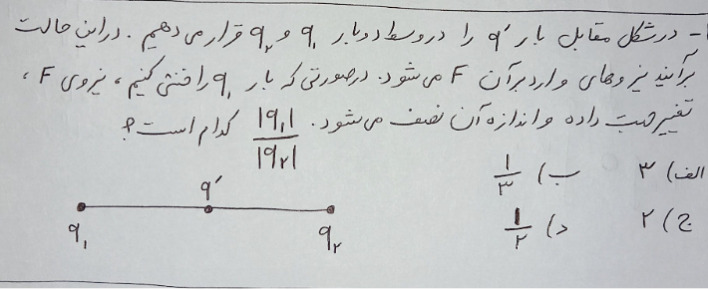 - در شکل مقابل بار q′ را در وسط دو بار q₁ و q₂ قرار می دهیم. در این حالت
برآیند نیروهای وارد برآن F می شود. درصورتی که بار q₁ را خنثی کنیم، نیروی F،
تغییر جهت داده و اندازه آن نصف می شود. |q₁| / |q₂| کدام است؟
الف) ۳ ب) ۱/۳
ج) ۲ د) ۱/۲
q′
q₁ q₂